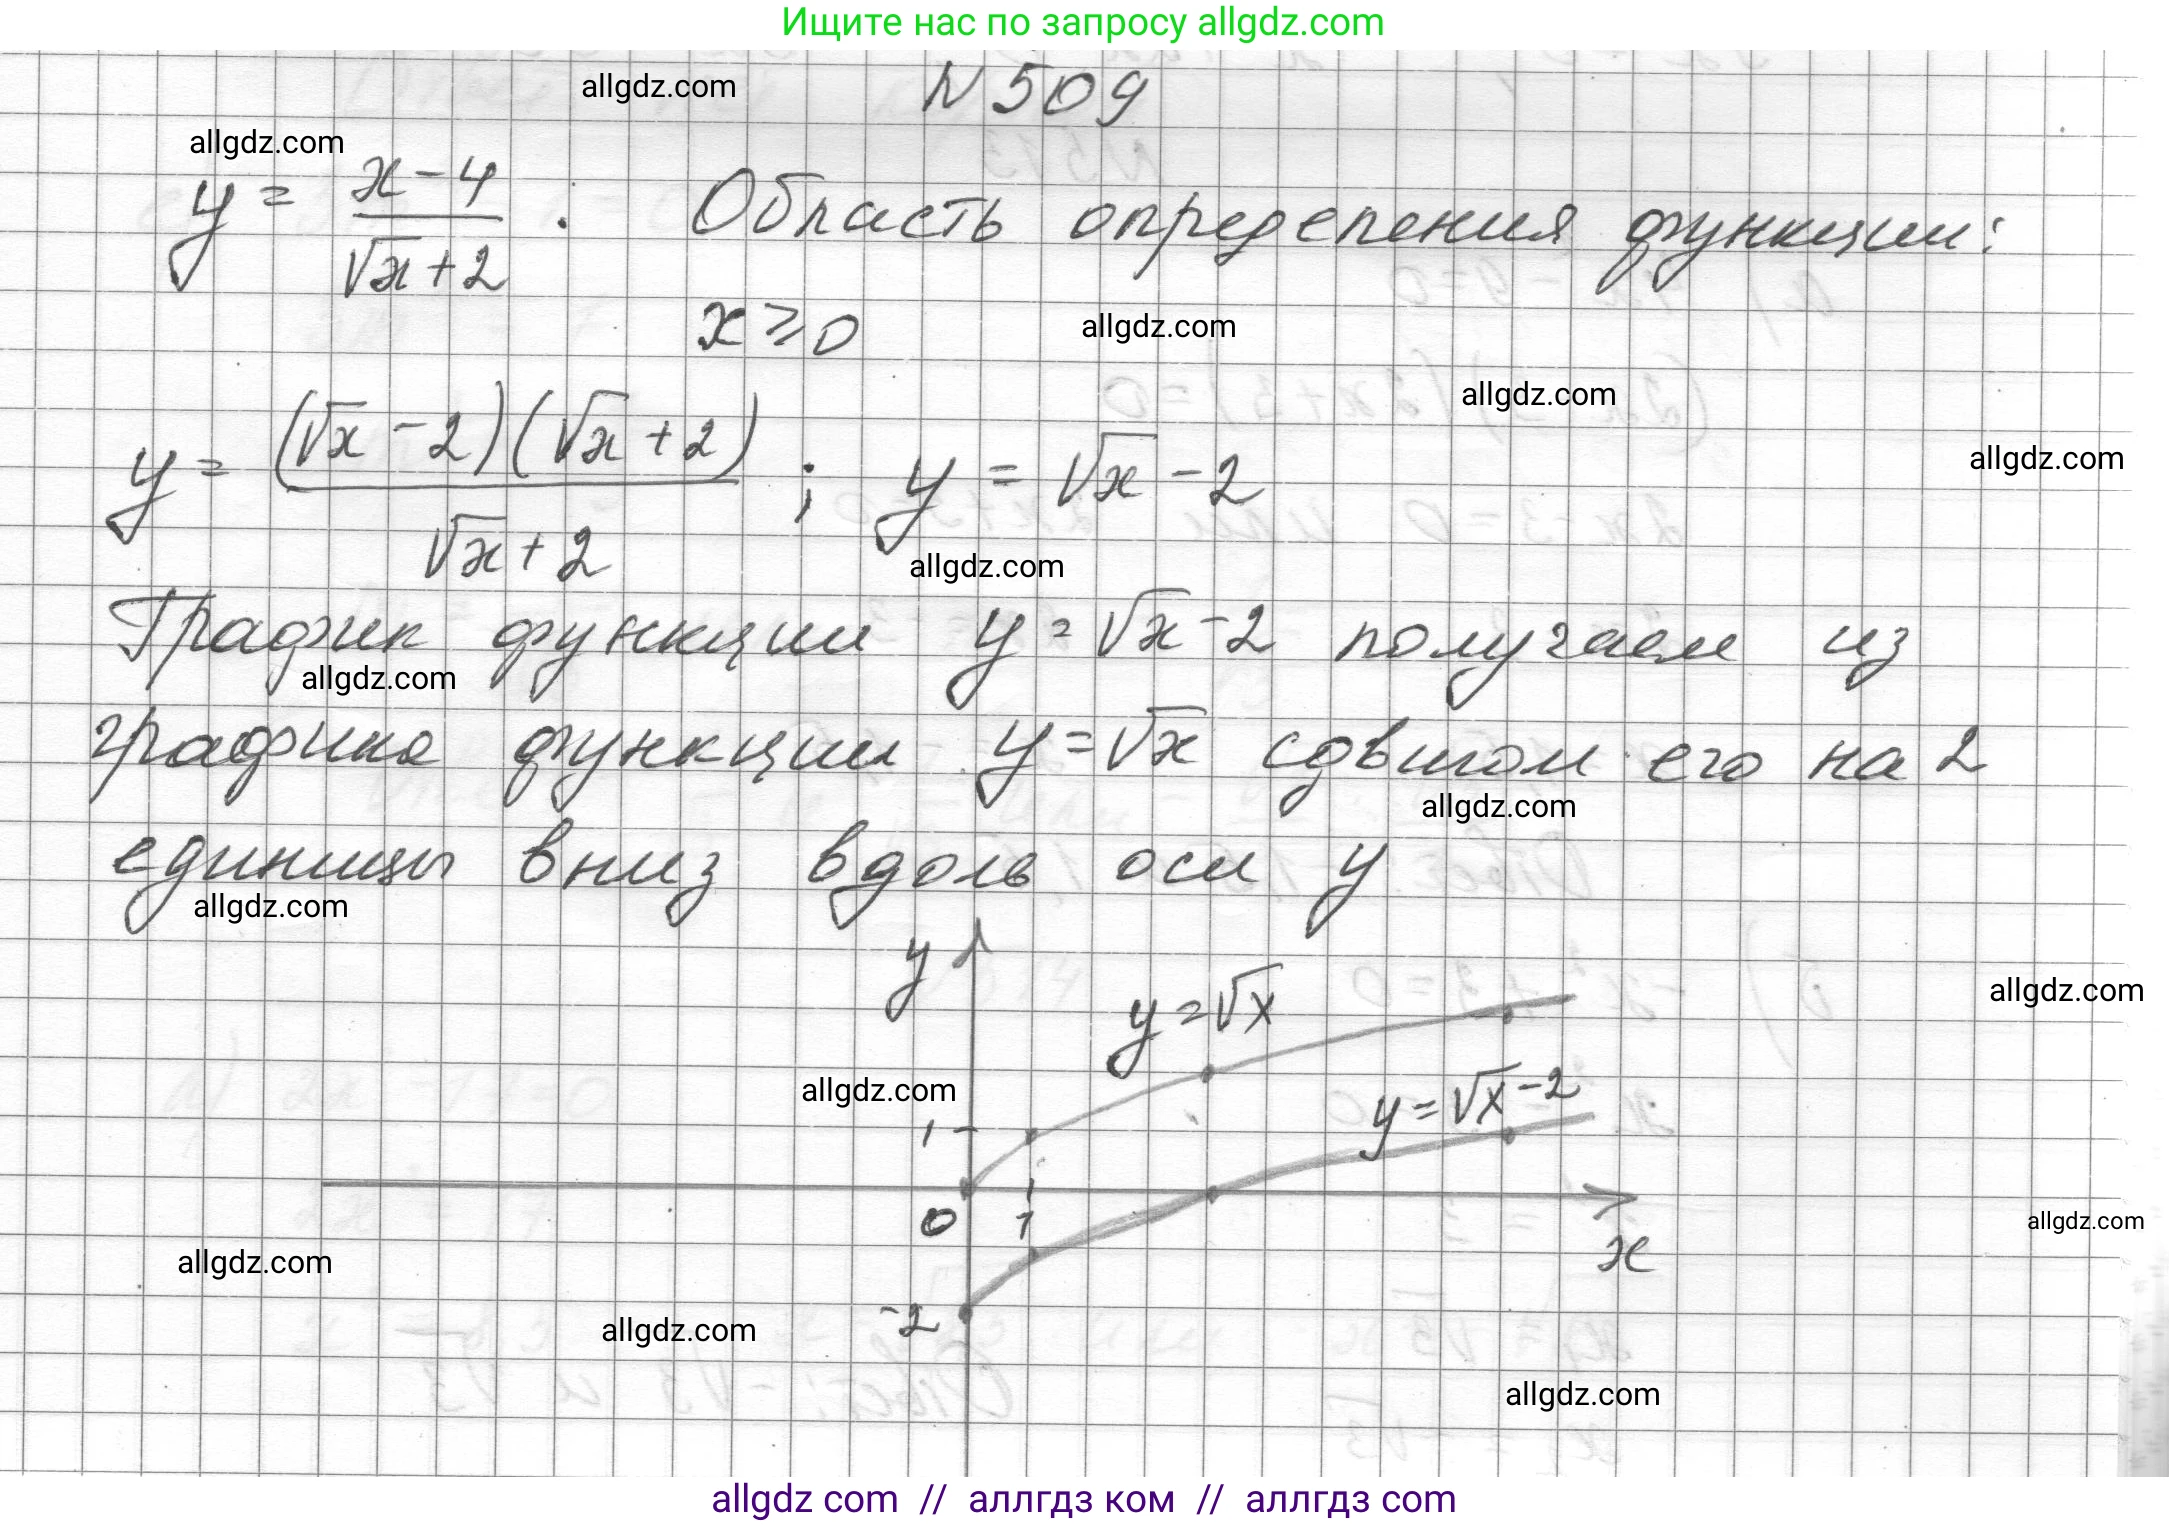 Ищите нас по запросу allgdz.com
allgdz.com
N 509
allgdz.com
y = x-4 / √x+2 : Область определения функции:
x ⩾ 0
allgdz.com
allgdz.com
y = (√x - 2)(√x + 2) / √x + 2 ; y = √x - 2
allgdz.com
allgdz.com
График функции y = √x - 2 получаем из
allgdz.com
графика функции y = √x сдвигом его на 2
allgdz.com
единицы вниз вдоль оси y
allgdz.com
y
y = √x
allgdz.com
allgdz.com
y = √x - 2
1
0 1
x
allgdz.com
allgdz.com
-2
allgdz.com
allgdz.com
allgdz com // аллгдз ком // аллгдз com